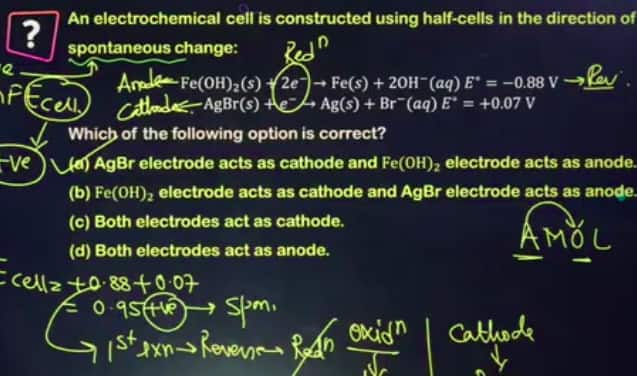 ?
An electrochemical cell is constructed using half-cells in the direction of
spontaneous change:
Redⁿ
Anode Fe(OH)₂(s) + 2e⁻ → Fe(s) + 2OH⁻(aq) E° = −0.88 V → Rev.
Ecell
Cathode AgBr(s) + e⁻ → Ag(s) + Br⁻(aq) E° = +0.07 V
Which of the following option is correct?
+ve
(a) AgBr electrode acts as cathode and Fe(OH)₂ electrode acts as anode.
(b) Fe(OH)₂ electrode acts as cathode and AgBr electrode acts as anode.
(c) Both electrodes act as cathode.
AMOL
(d) Both electrodes act as anode.
Ecell = +0.88+0.07
= 0.95 +ve → Spn.
1st rxn → Reverse → Redn oxidⁿ
Cathode